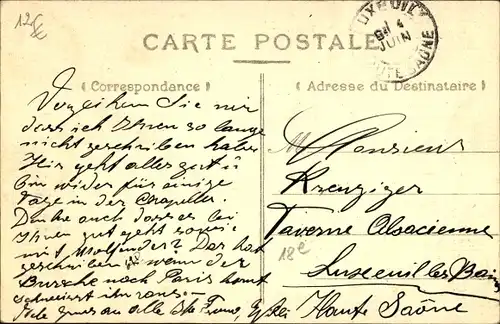 12 €
LUXEUIL
9H 4
JUIN
HAUTE SAONE
CARTE POSTALE
(Correspondance)
(Adresse du Destinataire)
Verzeihen Sie mir
dass ich Ihnen so lange
nicht geschrieben habe.
Hir geht alles gut u
bin wider für einige
Tage in der
Denke auch dass es bei
Ihnen gut geht sowie
mit Dass hat
geschrieben wenn der
Bursche nach Paris komt
schmeisst ihn raus
Viele Grüsse an alle Ihre Frau,
Monsieur
Krenziger
Taverne Alsacienne
18e
Luxeuil les Bains
Haute Saône